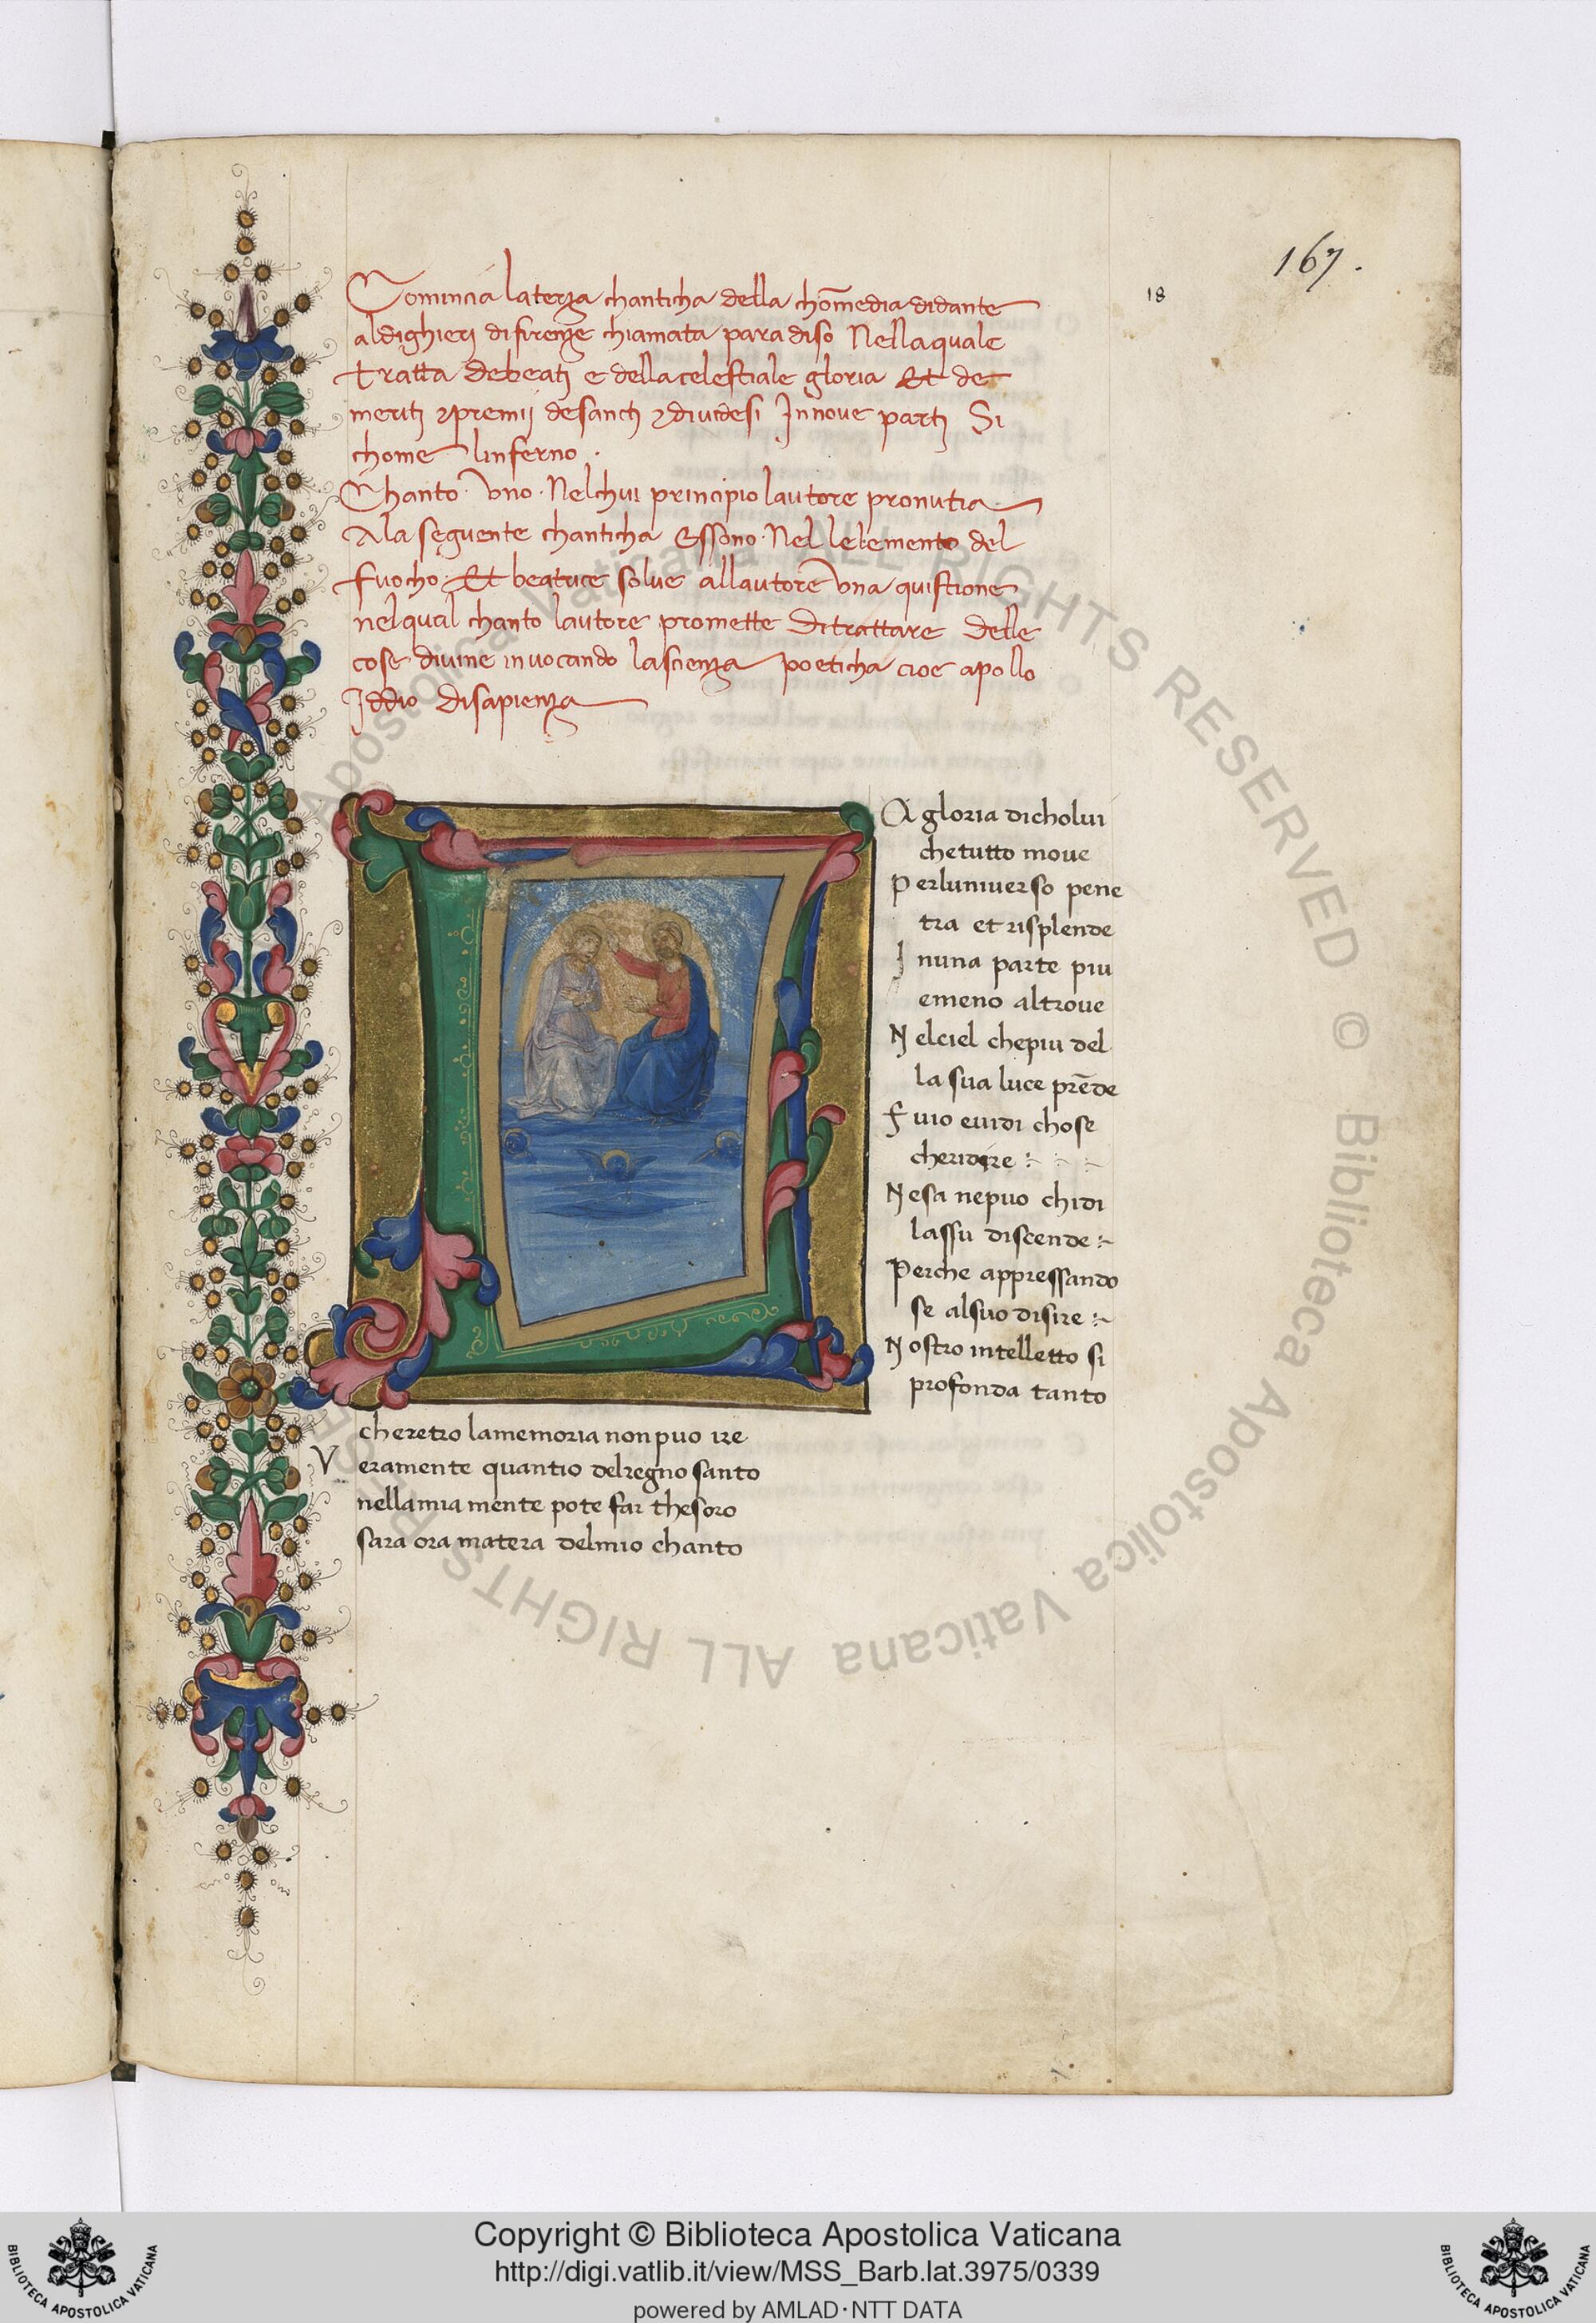 167.
18
Comincia la terza chanticha della chom̄edia didante
aldighierj difirenze chiamata paradiso Nellaquale
tratta debeatj e dellacelestiale gloria Et de
meritj ⁊premij desanctj ⁊diuidesi Jnnoue partj Si
chome linferno .
Chanto . vno . Nelchui principio lautore pronutia
Ala seguente chanticha Essono . Nel lelemento del
fuocho . Et beatrice solue allautore vna quistione
nelqual chanto lautore promette ditrattare delle
cose diuine inuocando lascienza poeticha cioe apollo
Jddio disapienza
LA gloria dicholui
chetutto moue
Perluniuerso pene
tra et risplende
Jnuna parte piu
emeno altroue
Nelciel chepiu del
la sua luce prēde
fuio euidi chose
cheridire
Nesa nepuo chidi
lassu discende
Perche appressando
se alsuo disire
Nostro intelletto si
profonda tanto
cheretro lamemoria nonpuo ire
Veramente quantio delregno santo
nellamia mente pote far thesoro
sara ora matera delmio chanto
Apostolica Vaticana ALL RIGHTS RESERVED © Biblioteca Apostolica Vaticana ALL RIGHTS RESE
Copyright © Biblioteca Apostolica Vaticana
http://digi.vatlib.it/view/MSS_Barb.lat.3975/0339
powered by AMLAD·NTT DATA
BIBLIOTECA APOSTOLICA VATICANA
BIBLIOTECA APOSTOLICA VATICANA